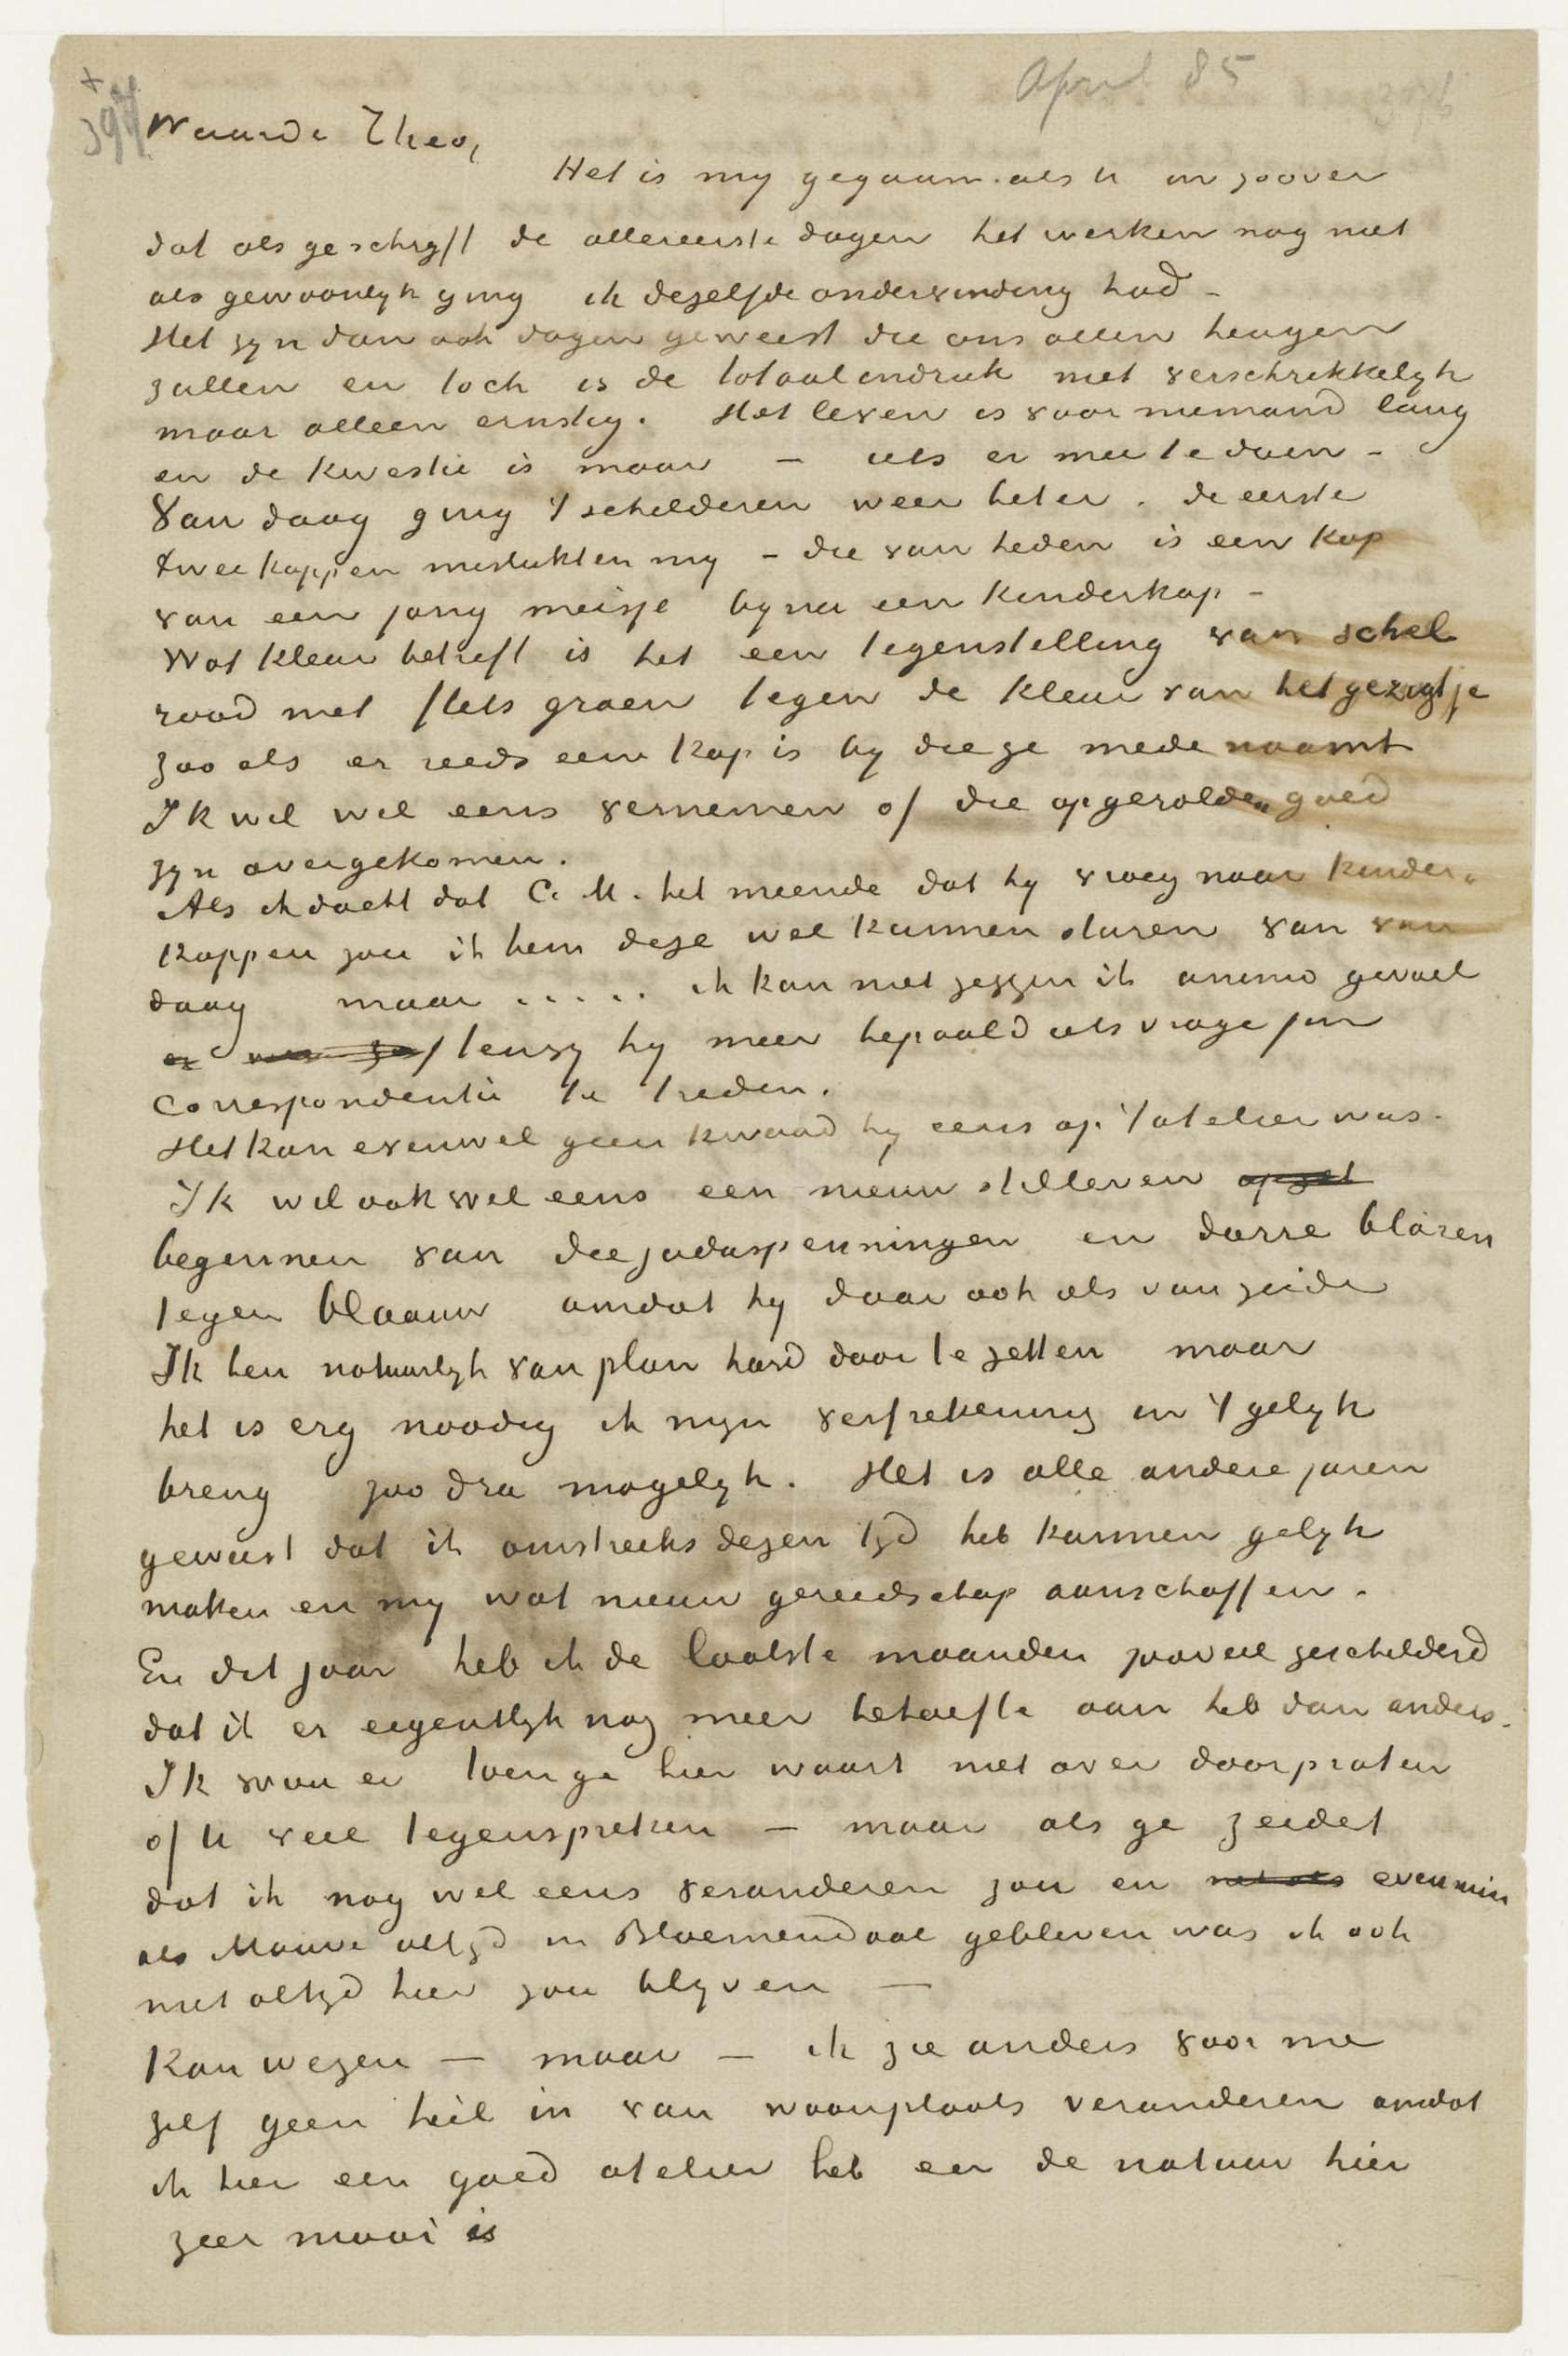 April 85
Waarde Theo,
Het is my gegaan als u in zoover
dat als ge schryft de allereerste dagen het werken nog niet
als gewoonlyk ging ik dezelfde ondervinding had –
Het zyn dan ook dagen geweest die ons allen heugen
zullen en toch is de totaalindruk niet verschrikkelyk
maar alleen ernstig. Het leven is voor niemand lang
en de kwestie is maar – iets er mee te doen –
Van daag ging 't schilderen weer beter. de eerste
twee koppen mislukten my – die van heden is een kop
van een jong meisje byna een kinderkop –
Wat kleur betreft is het een tegenstelling van schel
rood met flets groen tegen de kleur van het gezigtje
zooals er reeds een kop is by die ge mede naamt
Ik wil wel eens vernemen of die opgerolden goed
zyn overgekomen.
Als ik dacht dat C. M. het meende dat hy vroeg naar kinder.
koppen zou ik hem deze wel kunnen sturen van van
daag maar ..... ik kan niet zeggen ik animo gevoel
tenzy hy meer bepaald iets vrage in
correspondentie te treden.
Het kan evenwel geen kwaad hy eens op 't atelier was.
Ik wil ook wel eens een nieuw stilleven opzet
beginnen van die judaspenningen en dorre blâren
tegen blaauw omdat hy daar ook iets van zeide
Ik ben natuurlyk van plan hard door te zetten maar
het is erg noodig ik myn verfrekening in 't gelyk
breng zoo dra mogelyk. Het is alle andere jaren
geweest dat ik omstreeks dezen tyd heb kunnen gelyk
maken en my wat nieuw gereedschap aanschaffen.
En dit jaar heb ik de laatste maanden zooveel geschilderd
dat ik er eigentlyk nog meer behoefte aan heb dan anders.
Ik wou er toen ge hier waart niet over doorpraten
of U veel tegenspreken – maar als ge zeidet
dat ik nog wel eens veranderen zou en evenmin
als Mauve altyd in Bloemendaal gebleven was ik ook
niet altyd hier zou blyven –
Kan wezen – maar – ik zie anders voor me
zelf geen heil in van woonplaats veranderen omdat
ik hier een goed atelier heb en de natuur hier
zeer mooi is